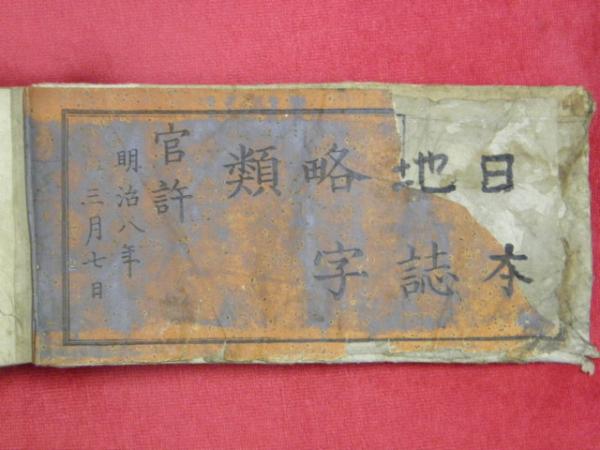 日本
地誌
略字
類
官許
明治八年
三月七日